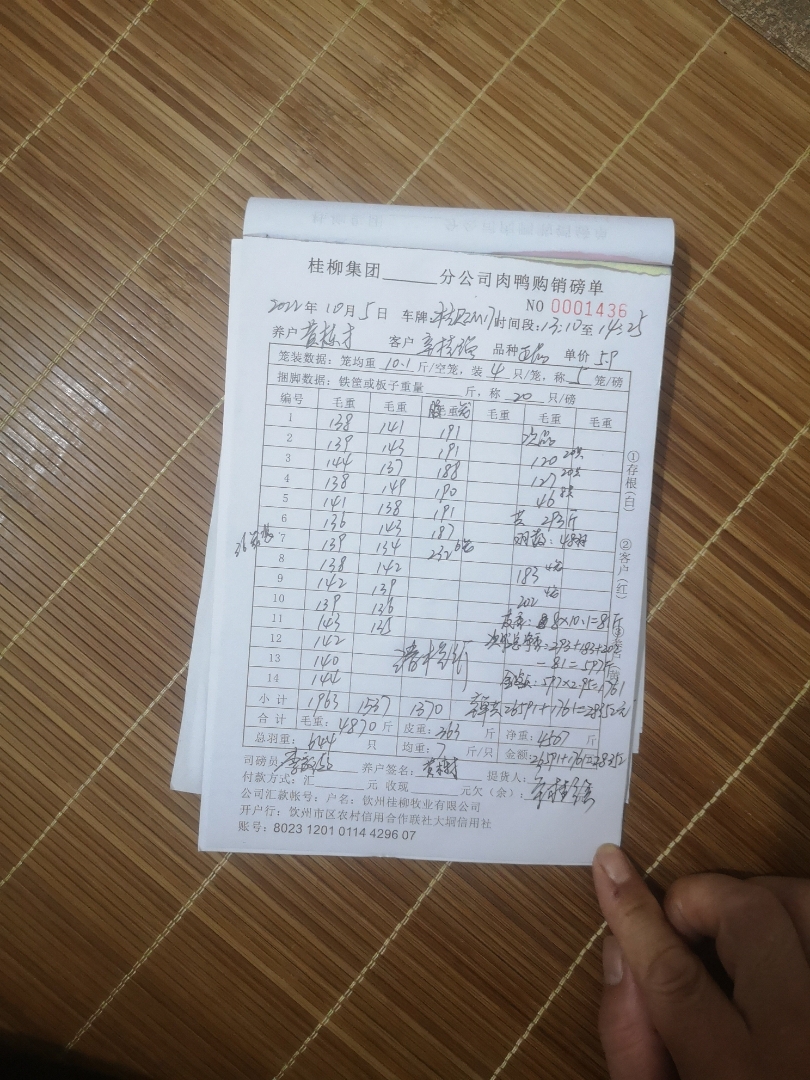 桂柳集团______分公司肉鸭购销磅单
NO 0001436
2022年 10月 5日 车牌: 时间段:13:10至14:25
养户 客户 品种 单价 5.9
笼装数据:笼均重 10.1 斤/空笼,装 4 只/笼,称 5 笼/磅
捆脚数据:铁筐或板子重量______斤,称 20 只/磅
编号 毛重 毛重 毛重 毛重 毛重 毛重
1 138 141 191 次品
2 139 143 191 120
3 144 137 188 127
4 138 149 190 46
5 141 138 191 共 293斤
6 136 143 187 48
7 139 134 232 6笼
8 138 142 183
9 142 139 202
10 139 136 皮重: 8×10.1=81斤
11 143 135 293+183+202
12 142 -81=597斤
13 140 597×2.95=1761
14 144 26591+1761=28352元
小计 1963 1537 1370
合计 毛重: 4870 斤 皮重: 363 斤 净重: 4507 斤
总羽重: 644 只 均重: 7 斤/只 金额: 26591+1761=28352
司磅员: 养户签名: 提货人:
付款方式:汇______元 收现______元欠(余):
公司汇款帐号:户名:钦州桂柳牧业有限公司
开户行:钦州市区农村信用合作联社大垌信用社
账号:8023 1201 0114 4296 07
①存根(白)
②客户(红)